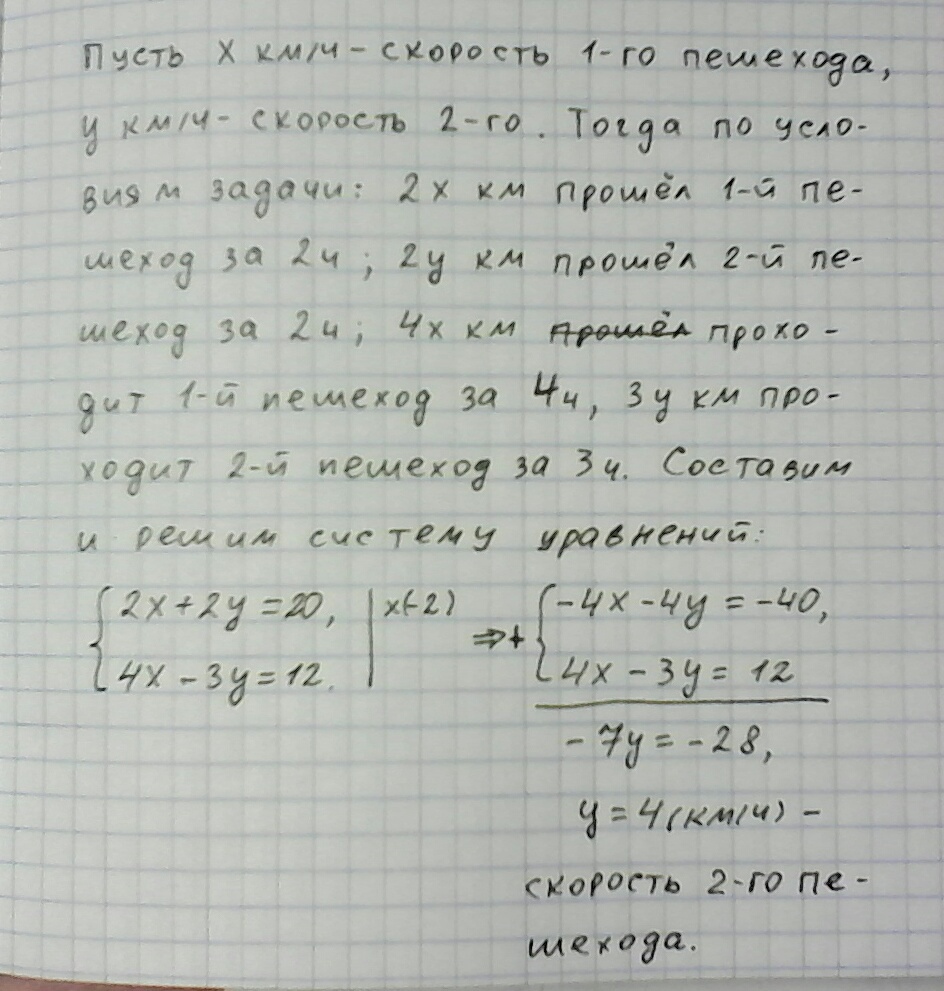 Пусть х км/ч - скорость 1-го пешехода,
у км/ч - скорость 2-го. Тогда по усло-
виям задачи: 2х км прошёл 1-й пе-
шеход за 2ч; 2у км прошёл 2-й пе-
шеход за 2ч; 4х км прошёл прохо-
дит 1-й пешеход за 4ч, 3у км про-
ходит 2-й пешеход за 3ч. Составим
и решим систему уравнений:
{2х+2у=20, |х(-2) ⇒ + {-4х-4у=-40,
4х-3у=12. | 4х-3у=12
-7у=-28,
у=4(км/ч) -
скорость 2-го пе-
шехода.